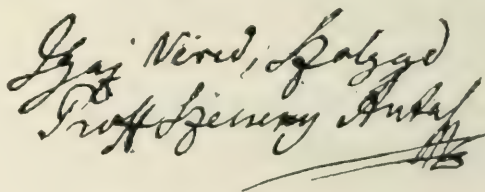 Igaz Híved, Szolgád
Proff Szirmay Antal